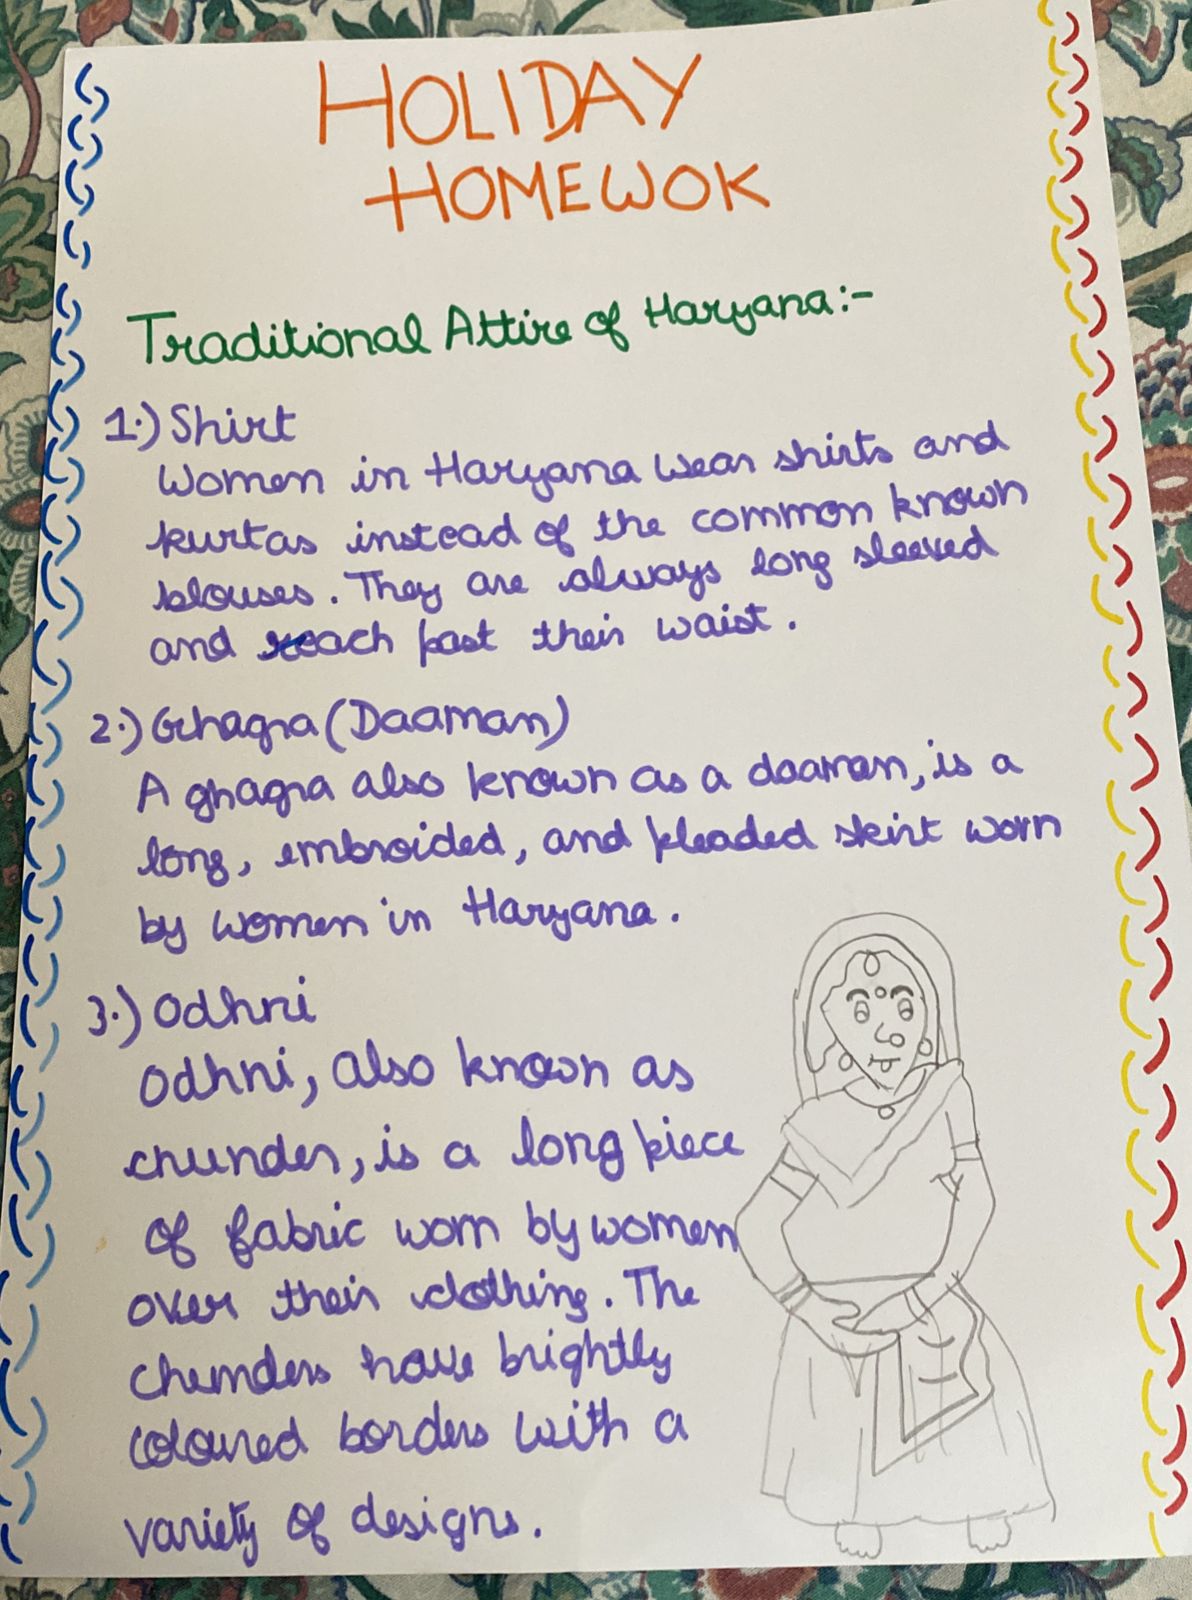 HOLIDAY
HOMEWOK
Traditional Attire of Haryana:-
1.) Shirt
Women in Haryana wear shirts and
kurtas instead of the common known
blouses. They are always long sleeved
and reach past their waist.
2.) Ghagra (Daaman)
A ghagra also known as a daaman, is a
long, embroided, and pleaded skirt worn
by women in Haryana.
3.) Odhni
Odhni, also known as
chunder, is a long piece
of fabric worn by women
over their clothing. The
chunders have brightly
coloured borders with a
variety of designs.